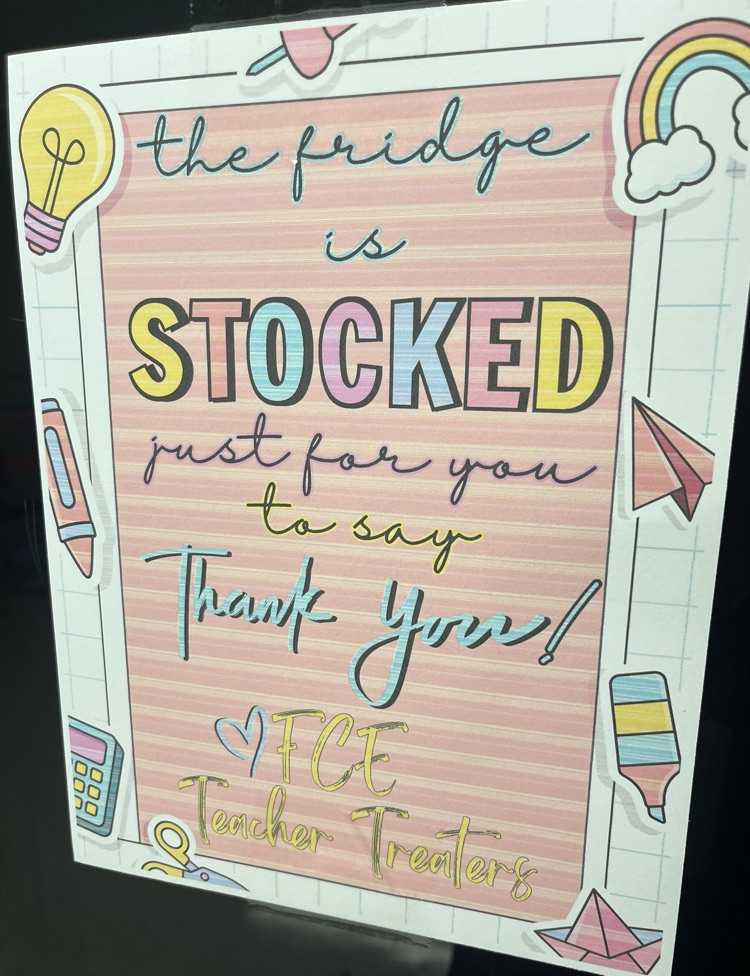 the fridge
is
STOCKED
just for you
to say
Thank You!
FCE
Teacher Treaters